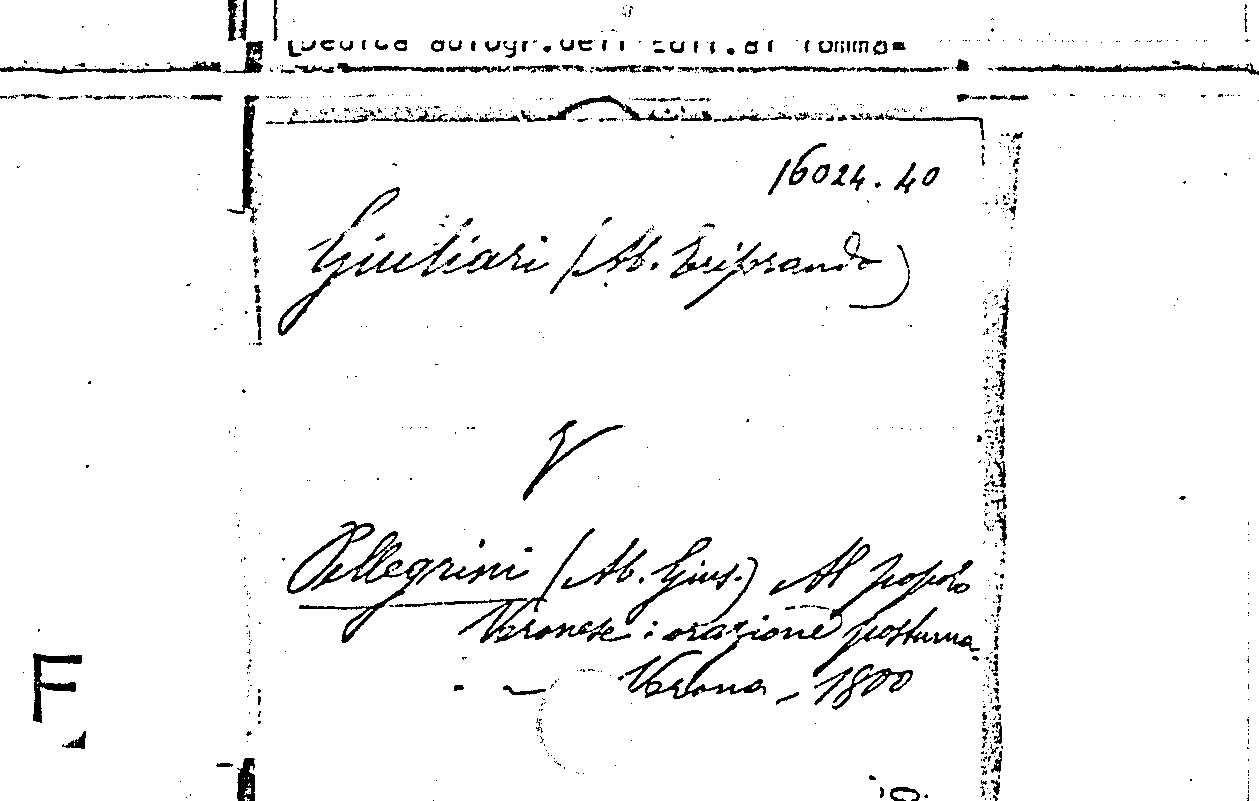 [Dedica autogr.dell'edit.al Tomma=
16024.40
Giuliari (Ab. Eriprando)
V
Pellegrini (Ab. Gius.) Al popolo
Veronese: orazione postuma.
Verona, 1800
F